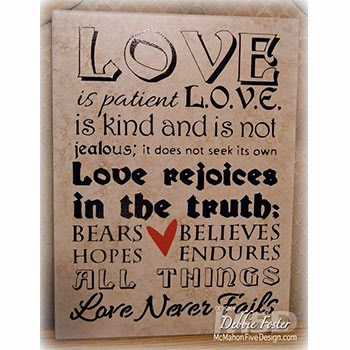 LOVE
is patient L.O.V.E.
is kind and is not
jealous; it does not seek its own
Love rejoices
in the truth;
BEARS BELIEVES
HOPES ENDURES
ALL THINGS
Love Never Fails
Debbie Foster
McMahonFiveDesign.com